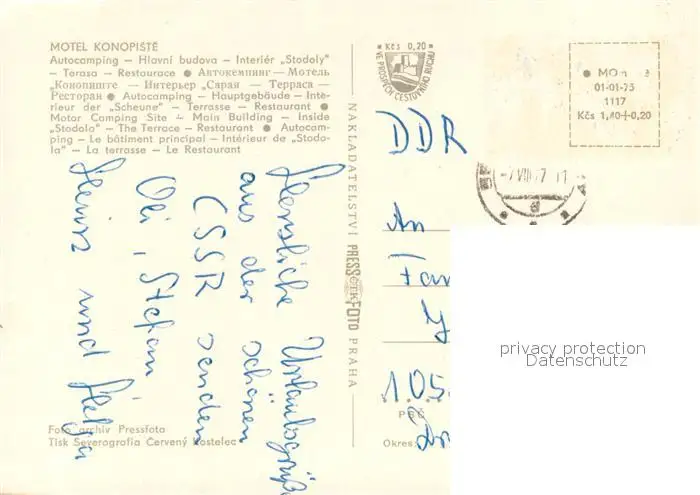 MOTEL KONOPIŠTĚ
Autocamping – Hlavní budova – Interiér „Stodoly"
– Terasa – Restaurace ● Автокемпинг — Мотель
„Конопиште — Интерьер „Сарая — Терраса —
Ресторан ● Autocamping – Hauptgebäude – Inte-
rieur der „Scheune" – Terrasse – Restaurant ●
Motor Camping Site – Main Building – Inside
„Stodola" – The Terrace – Restaurant ● Autocam-
ping – Le bâtiment principal – Intérieur de "Stodo-
la" – La terrasse – Le Restaurant
Herzliche Urlaubsgrüße
aus der schönen
CSSR senden
Oli, Stefan
Heinz und Helga
Foto archiv Pressfoto
Tisk Severografia Červený Kostelec
NAKLADATELSTVÍ PRESSFOTO PRAHA
ČTK
Kčs 0,20
VE PROSPĚCH CESTOVNÍHO RUCHU
01-01-75
1117
Kčs 1,40+0,20
DDR
An
Fam
105
PSČ
Okres:
privacy protection
Datenschutz